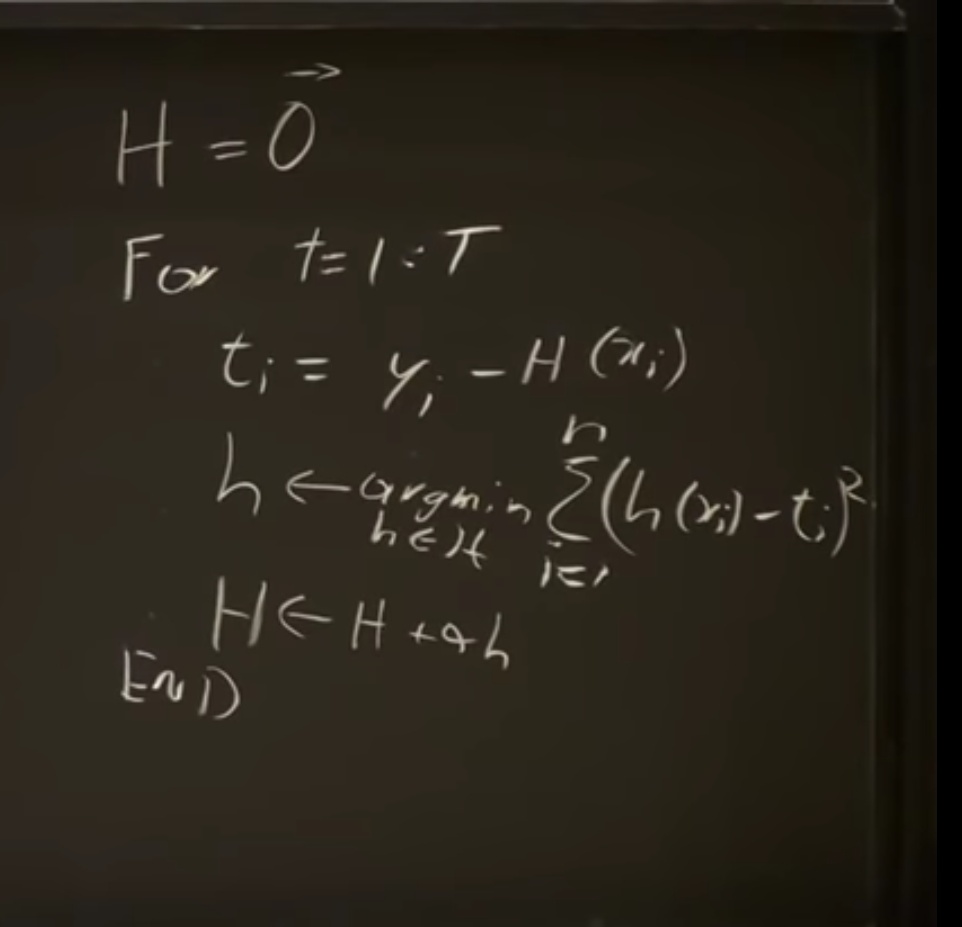 H = 0⃗
For t=1:T
tᵢ = yᵢ - H(xᵢ)
h ← argmin h∈ℋ ∑ᵢ₌₁ⁿ (h(xᵢ) - tᵢ)²
H ← H + αh
END